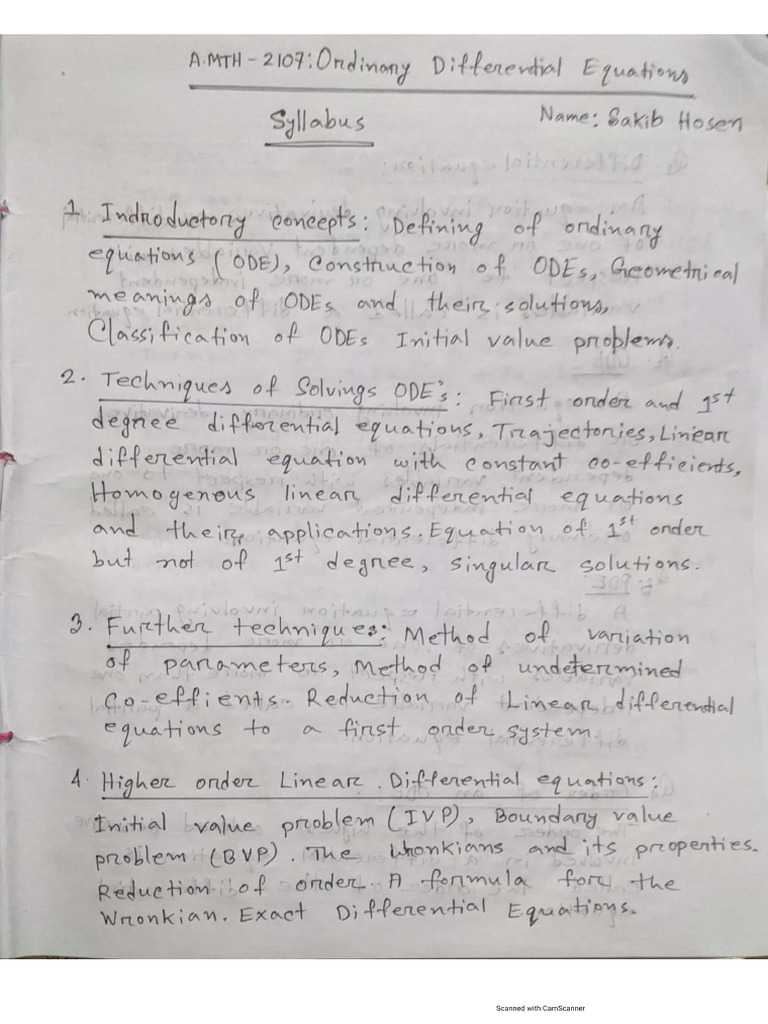 A.MTH-2107: Ordinary Differential Equations
Syllabus
Name: Sakib Hosen
1. Indroductory concepts: Defining of ordinary
equiations (ODE), Construction of ODEs, Geometrical
meanings of ODEs and their solutions,
Classification of ODEs Initial value problems.
2. Techniques of Solvings ODE's: First order and 1st
degree differential equations, Trajectories, Linear
differential equation with constant co-efficients,
Homogenous linear differential equations
and their applications. Equation of 1st order
but not of 1st degree, singular solutions.
3. Further techniques: Method of variation
of parameters, Method of undetermined
co-effients. Reduction of Linear differential
equations to a first order system.
4. Higher order Linear Differential equations:
Initial value problem (IVP), Boundary value
problem (BVP). The Wronkians and its properties.
Reduction of order. A formula for the
Wronkian. Exact Differential Equations.
Scanned with CamScanner